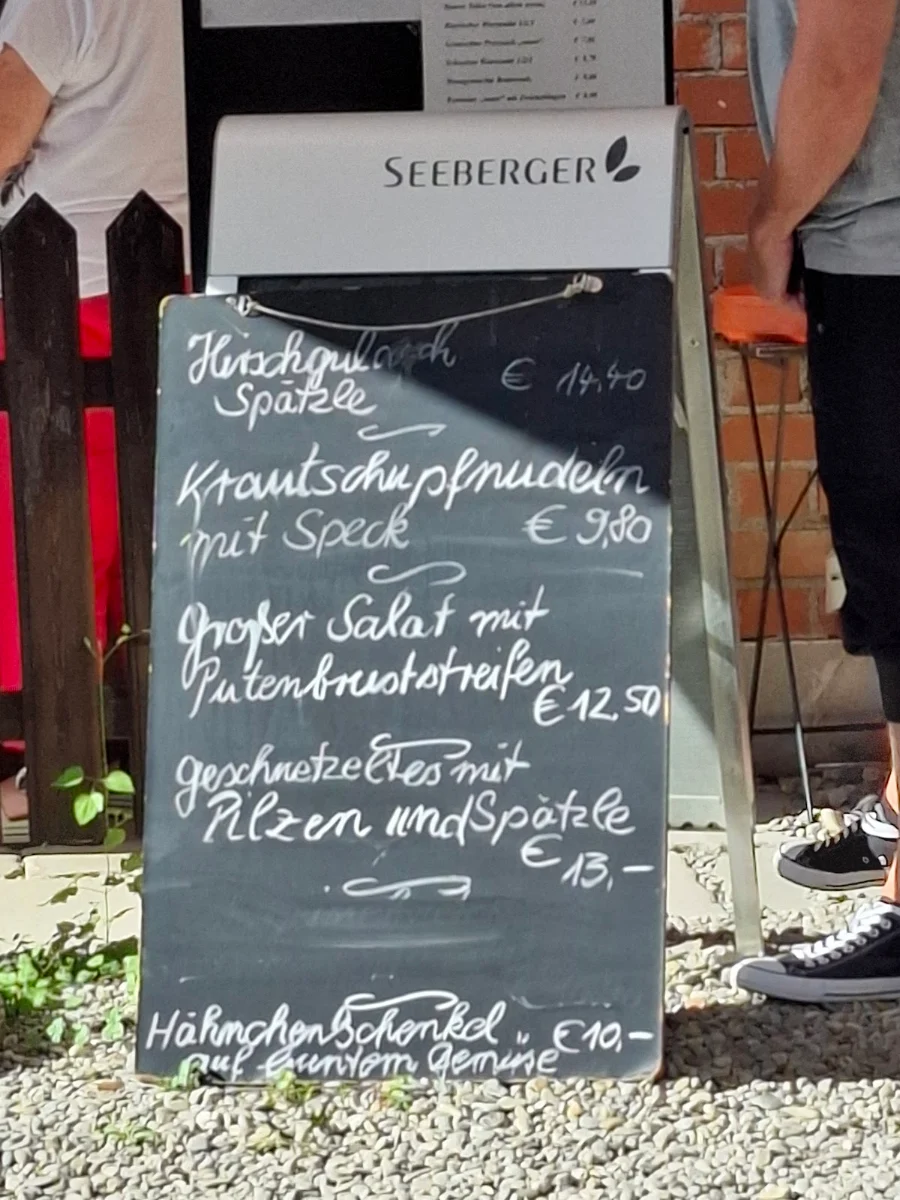 SEEBERGER
Hirschgulasch
Spätzle € 14,40
Krautschupfnudeln
mit Speck € 9,80
Großer Salat mit
Putenbruststreifen
€ 12,50
Geschnetzeltes mit
Pilzen und Spätzle
€ 13,-
Hähnchenschenkel € 10,-
auf buntem Gemüse